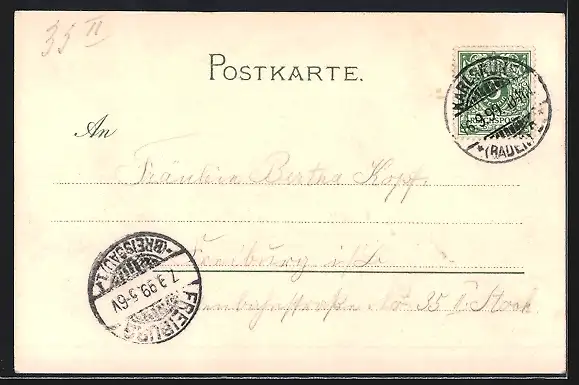 35 II
POSTKARTE.
KARLSRUHE
6.9.99.
* (BADEN) *
REICHSPOST
An
Fräulein Bertha Kopf.
Freiburg i/B
No 35 II. Stock
(BREISGAU) 1.
7.9.99.5-6V
FREIBURG